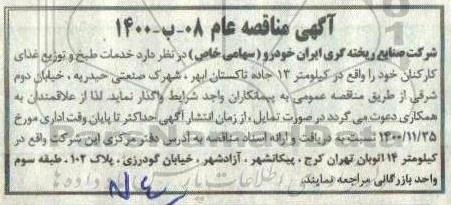 آگهی مناقصه عام ۰۸-ب-۱۴۰۰
شرکت صنایع ریخته گری ایران خودرو (سهامی خاص) در نظر دارد خدمات طبخ و توزیع غذای
کارکنان خود را واقع در کیلومتر ۱۳ جاده تاکستان ابهر، شهرک صنعتی حیدریه، خیابان دوم
شرقی از طریق مناقصه عمومی به پیمانکاران واجد شرایط واگذار نماید. لذا از علاقمندان به
همکاری دعوت می گردد در صورت تمایل، از زمان انتشار آگهی حداکثر تا پایان وقت اداری مورخ
۱۴۰۰/۱۱/۲۵ نسبت به دریافت و ارائه اسناد مناقصه به آدرس دفتر مرکزی این شرکت واقع در
کیلومتر ۱۴ اتوبان تهران کرج، پیکانشهر، آزادشهر، خیابان گودرزی، پلاک ۱۰۲، طبقه سوم
واحد بازرگانی مراجعه نمایند.